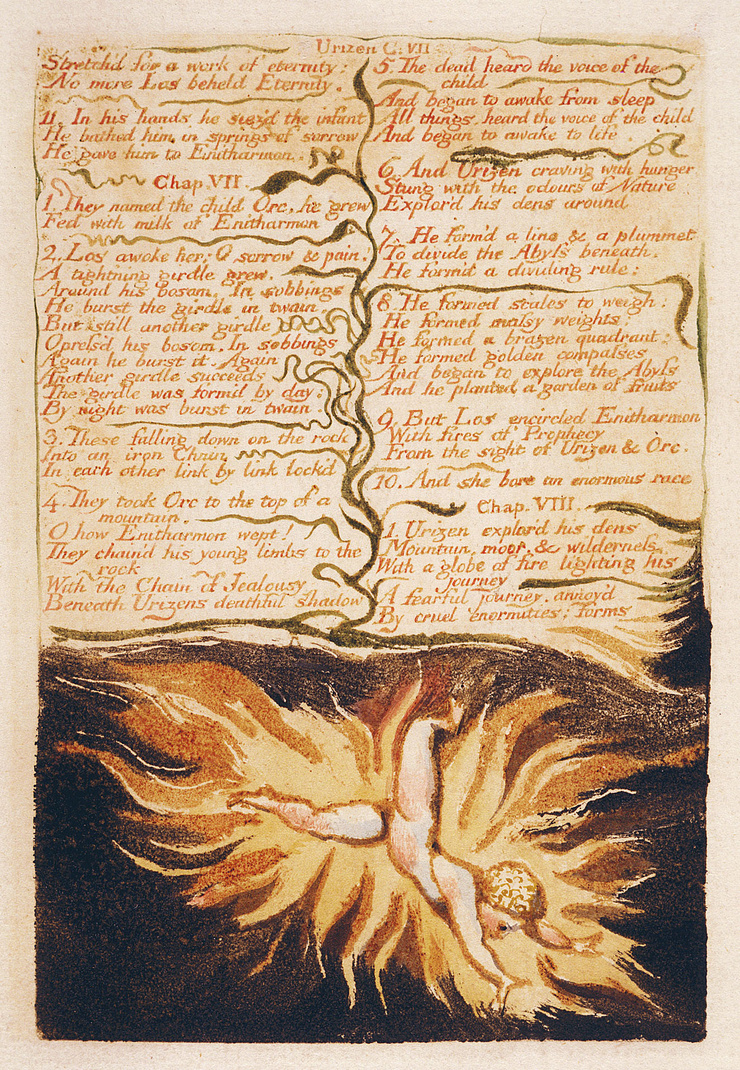 Urizen C. VII
Stretch'd for a work of eternity:
No more Los beheld Eternity.
11. In his hands he siez'd the infant
He bathed him in springs of sorrow
He gave him to Enitharmon.
Chap. VII.
1. They named the child Orc, he grew
Fed with milk of Enitharmon
2. Los awoke her; O sorrow & pain!
A tight'ning girdle grew,
Around his bosom. In sobbings
He burst the girdle in twain,
But still another girdle
Opress'd his bosom. In sobbings
Again he burst it. Again
Another girdle succeeds
The girdle was form'd by day;
By night was burst in twain.
3. These falling down on the rock
Into an iron Chain
In each other link by link lock'd
4. They took Orc to the top of a
mountain.
O how Enitharmon wept!
They chain'd his young limbs to the
rock
With the Chain of Jealousy
Beneath Urizens deathful shadow
5. The dead heard the voice of the
child
And began to awake from sleep
All things heard the voice of the child
And began to awake to life.
6. And Urizen craving with hunger
Stung with the odours of Nature
Explor'd his dens around
7. He form'd a line & a plummet
To divide the Abyss beneath.
He form'd a dividing rule:
8. He formed scales to weigh;
He formed massy weights;
He formed a brazen quadrant;
He formed golden compasses
And began to explore the Abyss
And he planted a garden of fruits
9. But Los encircled Enitharmon
With fires of Prophecy
From the sight of Urizen & Orc.
10. And she bore an enormous race
Chap. VIII.
1. Urizen explor'd his dens
Mountain, moor, & wilderness,
With a globe of fire lighting his
journey
A fearful journey, annoy'd
By cruel enormities: forms